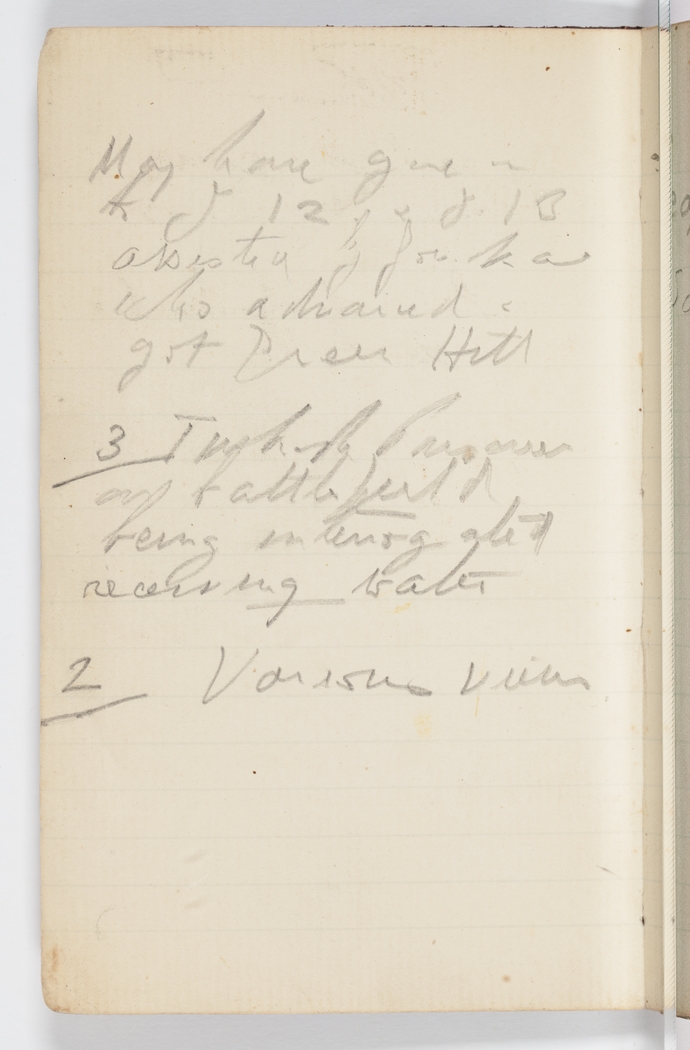 May have gone in
12 & 13
assisted by Gourkas
who advanced &
got Green Hill
3 Turkish Prisoners
on battlefield
being interrogated
receiving water
2 Various views